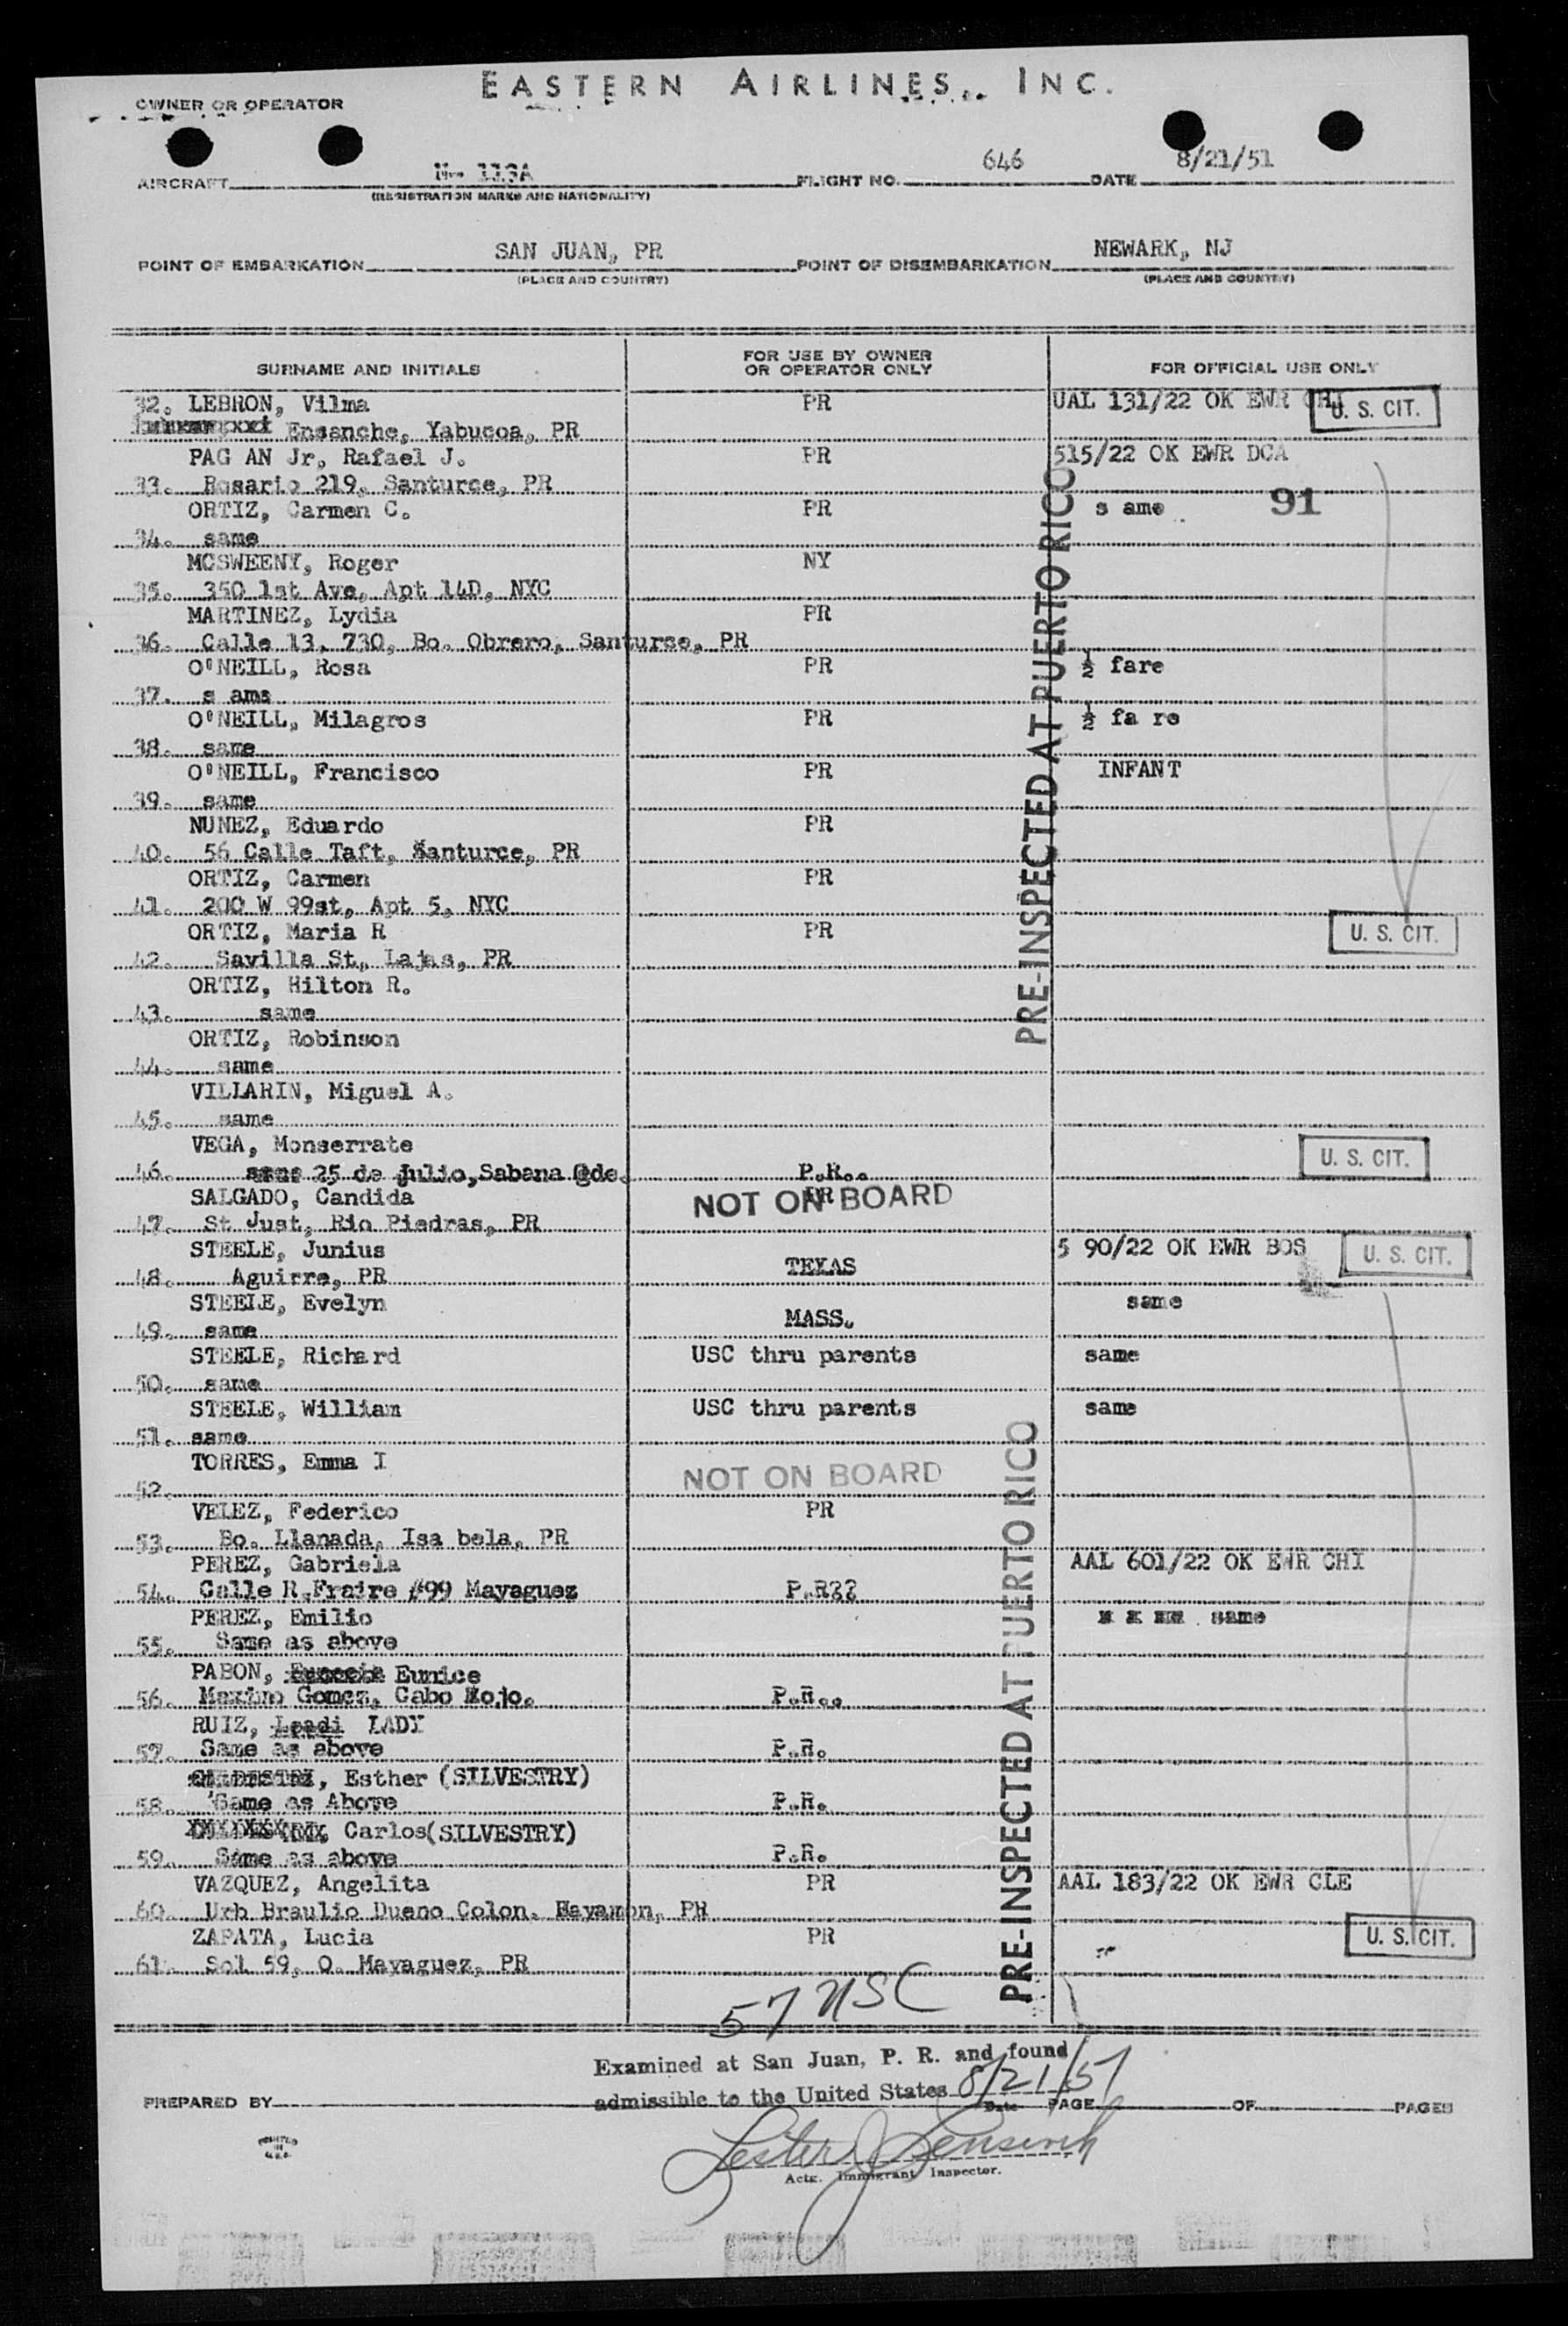 EASTERN AIRLINES, INC.
OWNER OR OPERATOR
AIRCRAFT N- 113A FLIGHT NO. 646 DATE 8/21/51
(REGISTRATION MARKS AND NATIONALITY)
POINT OF EMBARKATION SAN JUAN, PR POINT OF DISEMBARKATION NEWARK, NJ
(PLACE AND COUNTRY) (PLACE AND COUNTRY)
SURNAME AND INITIALS FOR USE BY OWNER OR OPERATOR ONLY FOR OFFICIAL USE ONLY
32. LEBRON, Vilma PR UAL 131/22 OK EWR CHI U. S. CIT.
Ensanche, Yabucoa, PR
PAG AN Jr, Rafael J. PR 515/22 OK EWR DCA
33. Rosario 219, Santurce, PR
ORTIZ, Carmen C. PR s ame 91
34. same
MCSWEENY, Roger NY
35. 350 1st Ave, Apt 14D, NYC
MARTINEZ, Lydia PR
36. Calle 13, 730, Bo. Obrero, Santurse, PR
O'NEILL, Rosa PR ½ fare
37. s ame
O'NEILL, Milagros PR ½ fa re
38. same
O'NEILL, Francisco PR INFANT
39. same
NUNEZ, Eduardo PR
40. 56 Calle Taft, Santurce, PR
ORTIZ, Carmen PR
41. 200 W 99st, Apt 5, NYC
ORTIZ, Maria R PR U. S. CIT.
42. Savilla St, Lajas, PR
ORTIZ, Hilton R.
43. same
ORTIZ, Robinson
44. same
VILLARIN, Miguel A.
45. same
VEGA, Monserrate U. S. CIT.
46. 25 de Julio, Sabana Gde. P.R..
SALGADO, Candida PR NOT ON BOARD
47. St Just, Rio Piedras, PR
STEELE, Junius TEXAS 5 90/22 OK EWR BOS U. S. CIT.
48. Aguirre, PR
STEELE, Evelyn MASS. same
49. same
STEELE, Richard USC thru parents same
50. same
STEELE, William USC thru parents same
51. same
TORRES, Emma I NOT ON BOARD
52.
VELEZ, Federico PR
53. Bo. Llanada, Isa bela, PR
PEREZ, Gabriela AAL 601/22 OK EWR CHI
54. Calle R.Fraire #99 Mayaguez P.R??
PEREZ, Emilio same
55. Same as above
PABON, Eunice
56. Maximo Gomez, Cabo Rojo. P.R..
RUIZ, Leadi LADY
57. Same as above P.R.
, Esther (SILVESTRY)
58. Same as Above P.R.
, Carlos(SILVESTRY)
59. Same as above P.R.
VAZQUEZ, Angelita PR AAL 183/22 OK EWR CLE
60. Urb Braulio Dueno Colon. Bayamon, PR
ZAPATA, Lucia PR U. S. CIT.
61. Sol 59, O. Mayaguez, PR
PRE-INSPECTED AT PUERTO RICO
PRE-INSPECTED AT PUERTO RICO
57 USC
Examined at San Juan, P. R. and found
admissible to the United States 8/21/51
Date
PREPARED BY PAGE OF PAGES
PRINTED
IN
U.S.A.
Actg. Immigrant Inspector.